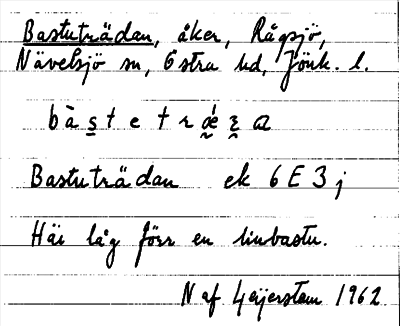 Bastuträdan, åker, Rågsjö,
Nävelsjö sn, Östra hd, Jönk. l.
Bastuträdan ek 6 E 3 j
Här låg förr en linbastu.
N af Geijerstam 1962